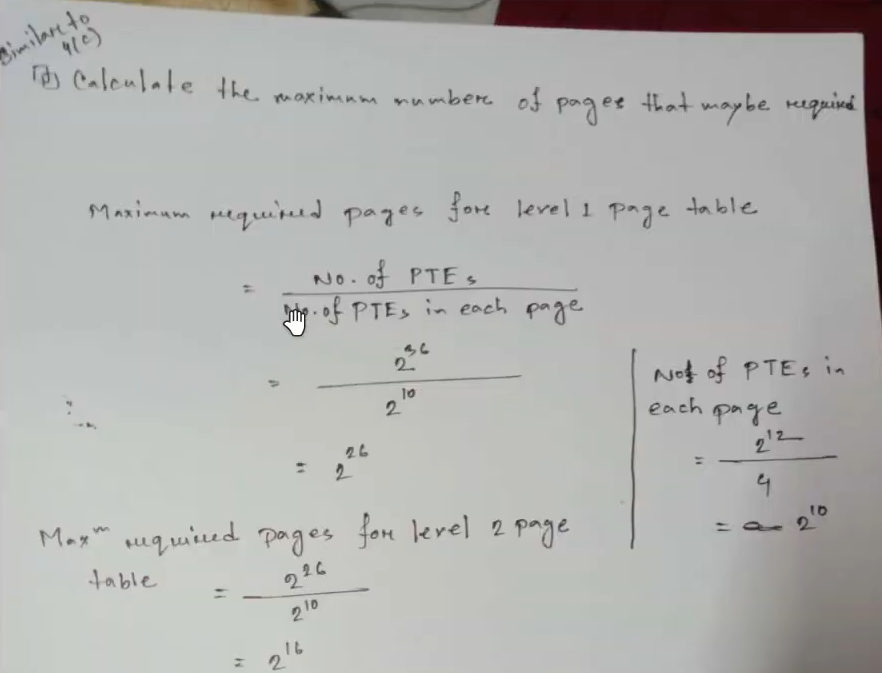 Similar to
4(c)
(d) Calculate the maximum number of pages that maybe required
Maximum required pages for level 1 page table
= No. of PTEs
No. of PTEs in each page
= 2^36
2^10
= 2^26
No of PTEs in
each page
= 2^12
4
= 2^10
Max^m required pages for level 2 page
table = 2^26
2^10
= 2^16